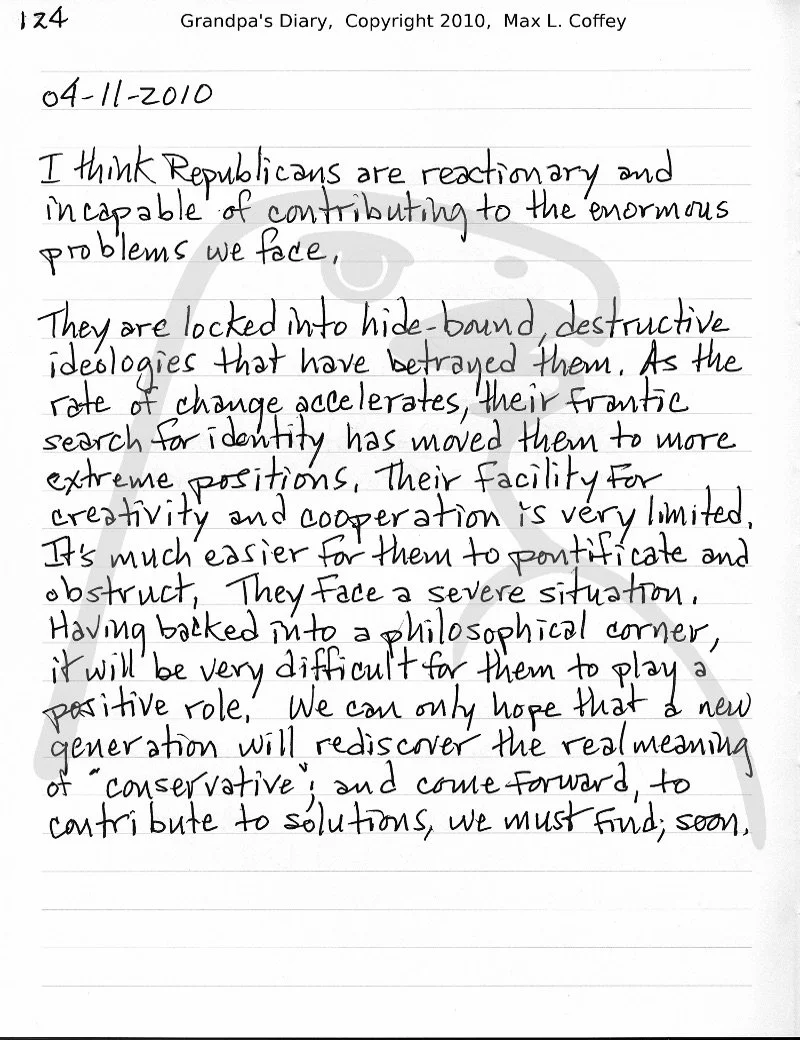 124
Grandpa's Diary, Copyright 2010, Max L. Coffey
04-11-2010
I think Republicans are reactionary and
incapable of contributing to the enormous
problems we face.
They are locked into hide-bound, destructive
ideologies that have betrayed them. As the
rate of change accelerates, their frantic
search for identity has moved them to more
extreme positions. Their facility for
creativity and cooperation is very limited.
It's much easier for them to pontificate and
obstruct. They face a severe situation.
Having backed into a philosophical corner,
it will be very difficult for them to play a
positive role. We can only hope that a new
generation will rediscover the real meaning
of "conservative"; and come forward, to
contribute to solutions, we must find; soon.